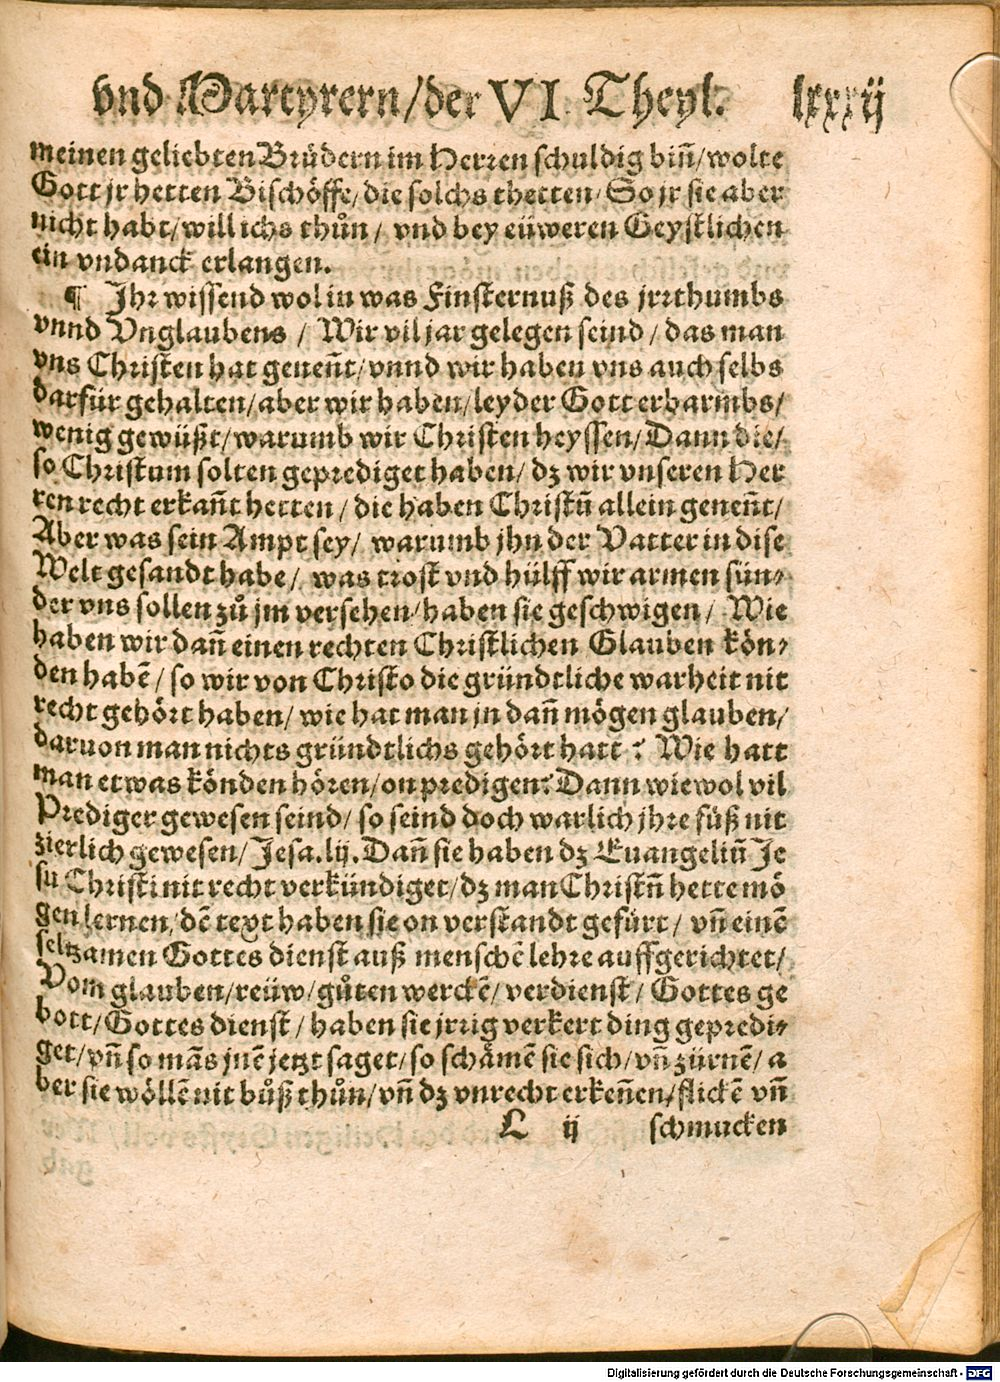 vnd Martyrern/der VI. Theyl. lxxxij
meinen geliebten Brüdern im Herren schuldig biñ/wolte
Gott jr hetten Bischöffe/die solchs thetten/So jr sie aber
nicht habt/will ichs thůn/ vnd bey eüweren Geystlichen
ein vndanck erlangen.
¶ Ihr wissend wol in was Finsternuß des jrrthumbs
vnnd Vnglaubens / Wir vil jar gelegen seind / das man
vns Christen hat geneñt/vnnd wir haben vns auch selbs
darfür gehalten/aber wir haben/leyder Gott erbarmbs/
wenig gewüßt/warumb wir Christen heyssen/Dann die/
so Christum solten geprediget haben/ dz wir vnseren Her
ren recht erkañt hetten / die haben Christũ allein geneñt/
Aber was sein Ampt sey/ warumb jhn der Vatter in dise
Welt gesandt habe/ was trost vnd hülff wir armen sün⸗
der vns sollen zů jm versehen/haben sie geschwigen/ Wie
haben wir dañ einen rechten Christlichen Glauben kön⸗
den habẽ / so wir von Christo die gründtliche warheit nit
recht gehört haben/ wie hat man jn dañ mögen glauben/
daruon man nichts gründtlichs gehört hatt? Wie hatt
man etwas könden hören/on predigen? Dann wiewol vil
Prediger gewesen seind/ so seind doch warlich jhre füß nit
zierlich gewesen/ Jesa.lij. Dañ sie haben dz Euangeliũ Je
su Christi nit recht verkündiget/dz man Christũ hette mö
gen lernen/dẽ text haben sie on verstandt gefürt/ vñ einẽ
seltzamen Gottes dienst auß menschẽ lehre auffgerichtet/
Vom glauben/reüw/gůten werckẽ/ verdienst/ Gottes ge
bott/Gottes dienst/ haben sie jrrig verkert ding gepredi⸗
get/vñ so mãs jnẽ jetzt saget/so schåmẽ sie sich/vñ zürnẽ/ a
ber sie wöllẽ nit bůß thůn/vñ dz vnrecht erkeñen/flickẽ vñ
L ij schmucken
Digitalisierung gefördert durch die Deutsche Forschungsgemeinschaft - DFG